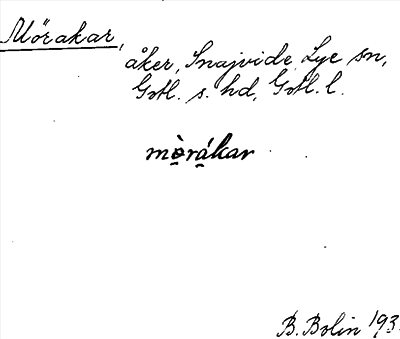 Mörakar,
åker, Snajvide, Lye sn,
Gotl. s. hd, Gotl. l.
mö̀rákar
B. Bolin 193